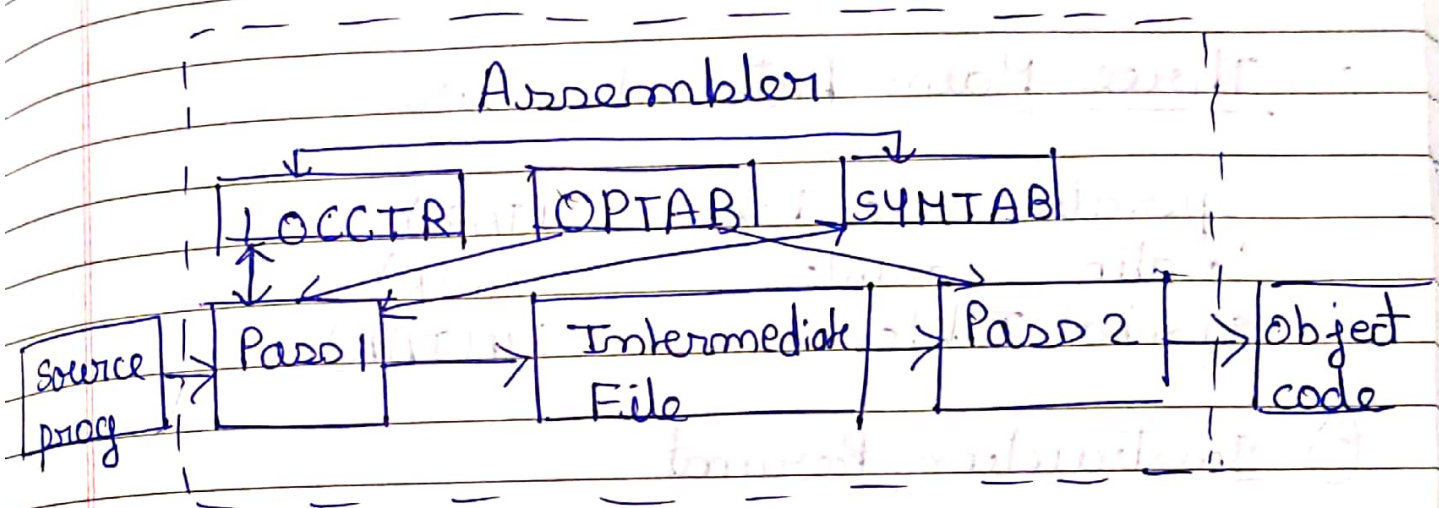 Assembler
LOCCTR OPTAB SYMTAB
Source prog
Pass 1
Intermediate File
Pass 2
Object code